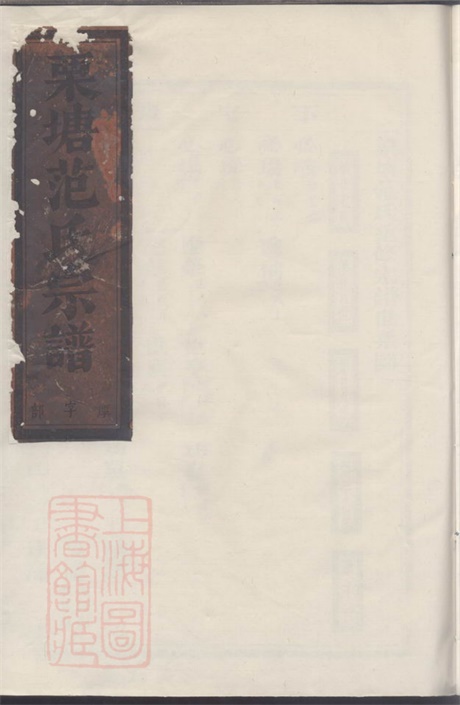 栗塘范氏宗譜
字
上海圖
書館藏